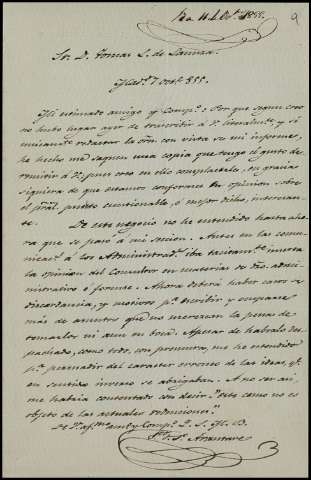 Sr. D. Tomas L. de
7 855.
Mi estimado amigo y Comp.º: Porque segun creo
no hubo lugar ayer de transcribir á V. literalm.te, y sí
redactar la orn. con vista de mi informe,
he hecho me saquen una copia que tengo el gusto de
remitir á V; pues creo en ello complacerlo, en gracia
siquiera de que estamos conformes en opinion sobre
el pral. punto cuestionable, ó mejor dicho, interesan-
te.
De este negocio no he entendido hasta aho-
ra que se pasó á mi seccion. Antes en las comu-
nicac.s á los Administrad.s iba tacitam.te inserta
la opinion del Consultor en materias de dro. admi-
nistrativo ó forense. Ahora deberá haber caso de
discordancia, y motivos p.a escribir y ocuparse
más de asuntos que no merezcan la pena de
tomarlos ni aun en boca. Apesar de haberlo des-
pachado, como todo, con premura, me he estendido
p.a persuadir del caracter erroneo de las ideas, q.e
en sentido inverso se abrigaban. A no ser así,
me habria contentado con decir: "Este caso no es
objeto de las actuales redenciones."
De V. af.mo am.o y Comp.º Q. S. M. B.